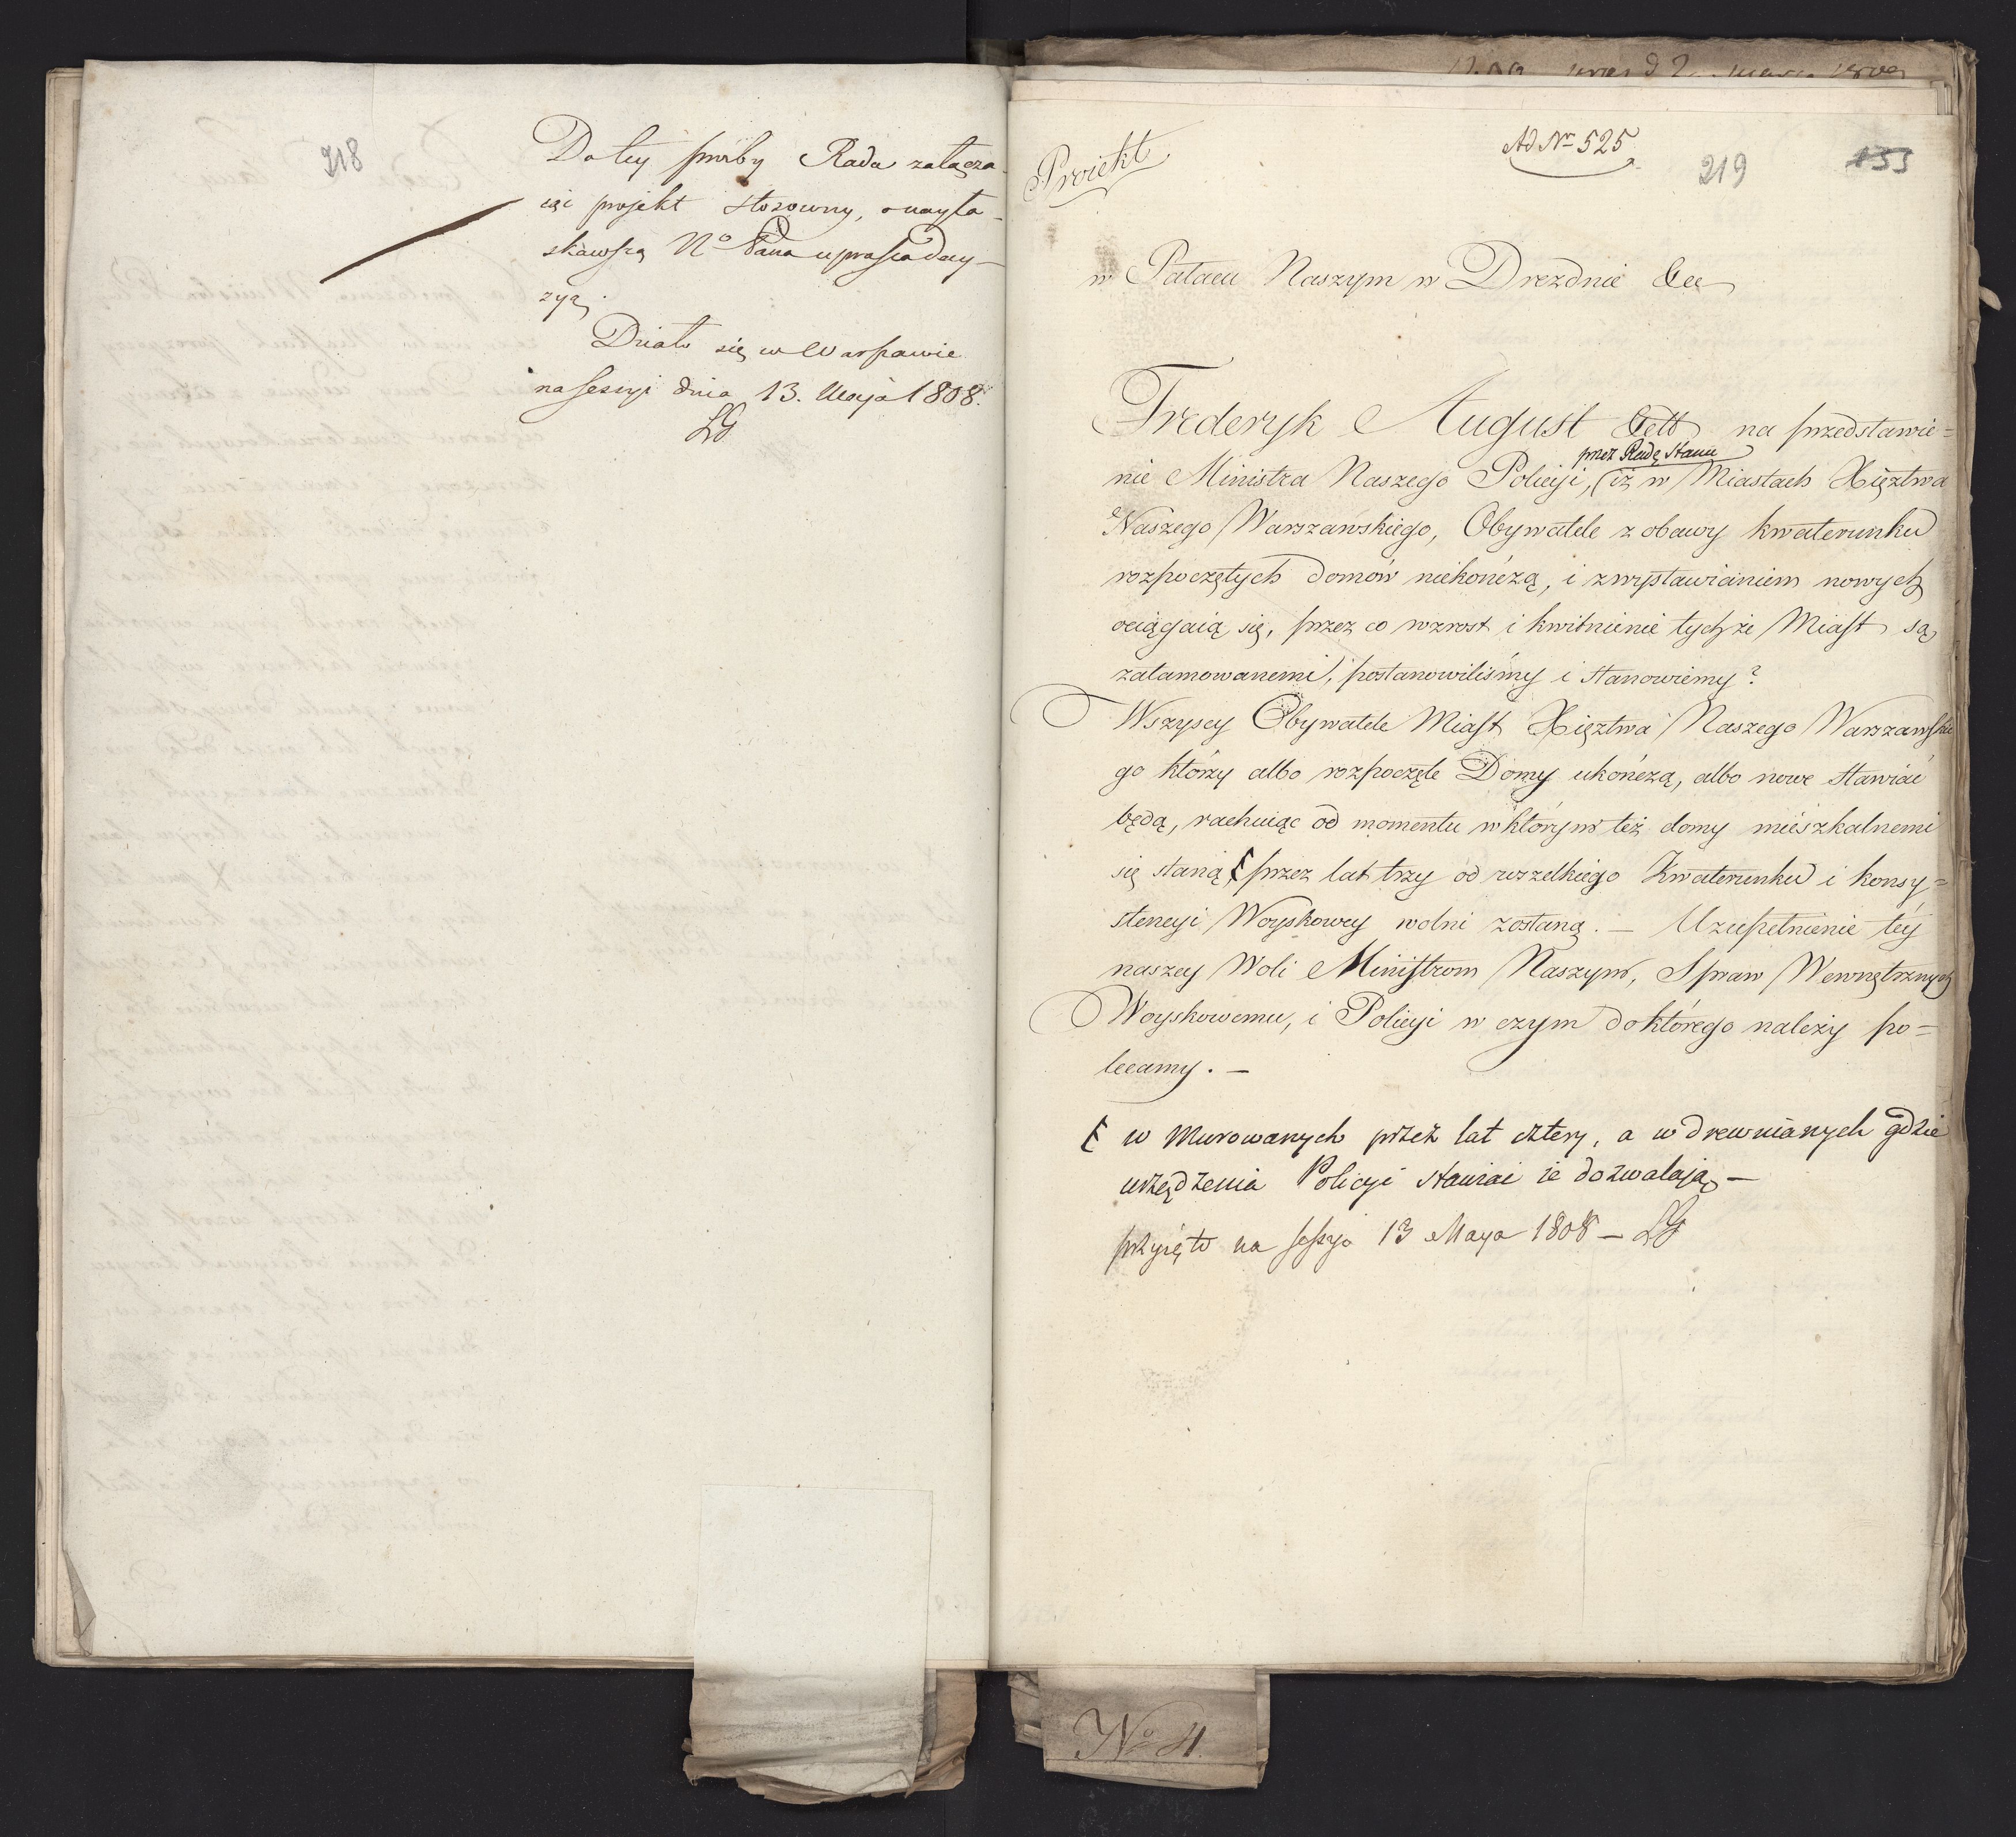 218
Do tey prośby Rada załącza
iąc projekt stosowny, o nayła-
skawszą N° Pana uprasza decy-
zyą.
Działo się w Warszawie
na sessyi dnia 13. Maja 1808.
LG
Ad Nr 525
Proiekt
219
155
w Pałacu Naszym w Dreznie &c
Frederyk August &ett na przedstawie=
przez Radę Stanu
nie Ministra Naszego Policyi, iż w Miastach Xięztwa
Naszego Warszawskiego, Obywatele z obawy kwaterunku
rozpoczętych domów niekończą, i z wystawieniem nowych
ociągaią się, przez co wzrost i kwitnienie tychże Miast są
zatamowanemi, postanowiliśmy i stanowiemy?
Wszyscy Obywatele Miast Xięztwa Naszego Warszawskie
go którzy albo rozpoczęte Domy ukończą, albo nowe stawiać
będą, rachuiąc od momentu w którym też domy mieszkalnemi
się staną przez lat trzy od wszelkiego Kwaterunku i konsy=
stencyi Woyskowey wolni zostaną. — Uzupełnienie téy
naszey Woli Ministrom Naszym, Spraw Wewnętrznych
Woyskowemu, i Policyi w czym do którego należy po=
lecamy. —
w Murowanych przez lat cztery, a w drewnianych gdzie
urządzenia Policyi stawiać ie dozwalają —
przyięto na sessyi 13 Maya 1808 — LG
No 4.